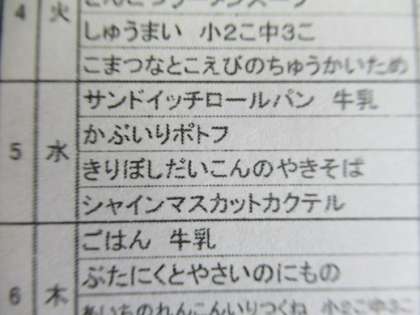 4 火
しゅうまい 小2こ中3こ
こまつなとこえびのちゅうかいため
5 水
サンドイッチロールパン 牛乳
かぶいりポトフ
きりぼしだいこんのやきそば
シャインマスカットカクテル
6 木
ごはん 牛乳
ぶたにくとやさいのにもの
あいちのれんこんいりつくね 小2こ中3こ